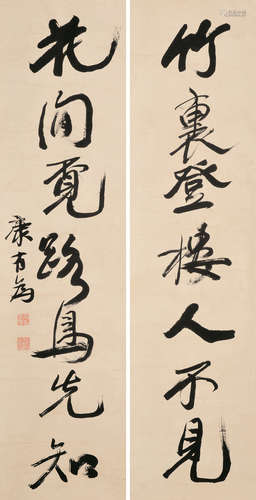 竹裏登樓人不見
花間覓路鳥先知
康有為